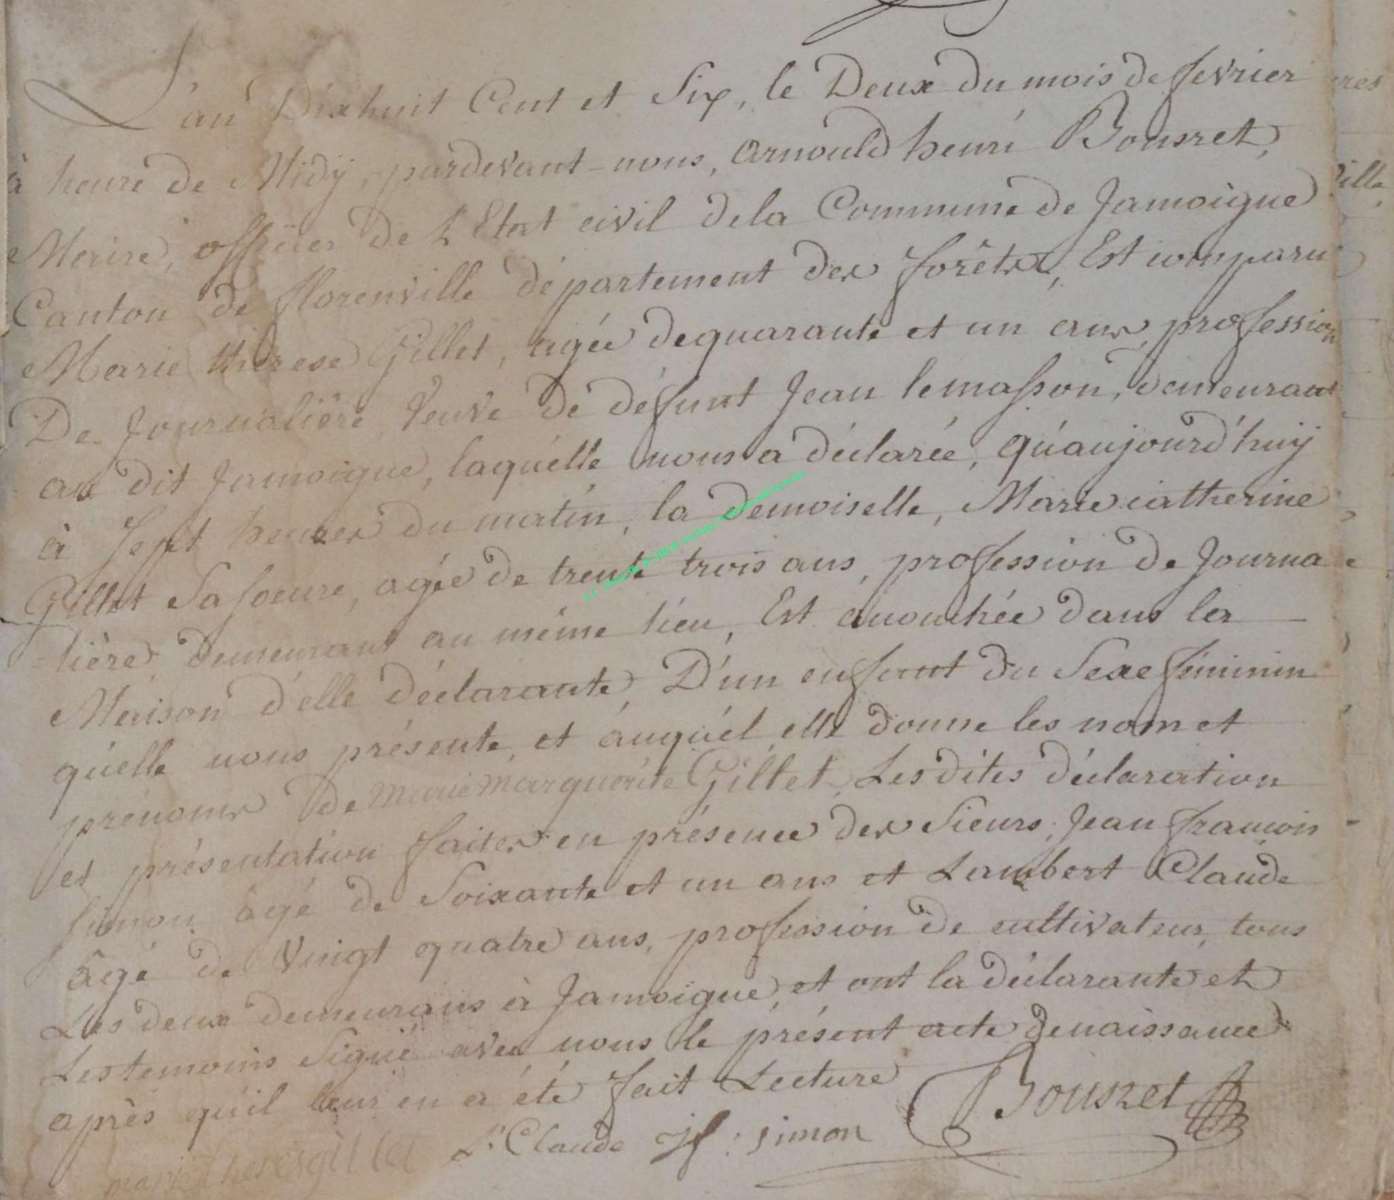 L'an Dixhuit Cent et Six, le Deux du mois de fevrier
à heure de Midÿ, pardevant-nous, arnould henri Bousret,
Maire, officier de L'Etat civil de la Commune de Jamoigne
Canton de florenville département des forêts, Est comparu
Marie thérese Gillet, agée de quarante et un ans, profession
De Journalière, Veuve de défunt Jean lemasson, demeurant
au dit Jamoigne, laquélle nous a déclarée, qúaujourd'huÿ
à Sept heures du matin, la demoiselle, Marie catherine
Gillet Sa soeure, agée de trente trois ans, profession de Journa
-lière demeurant au même lieu, Est accouchée dans la
Maison d'elle déclarante, D'un enfant du Sexe féminin
qúelle nous présente, et áuqúel elle donne les nom et
prénoms De marie marguerite Gillet, Les dites déclaration
et présentation faites en présence des Sieurs, Jean francois
simon âgé de Soixante et un ans et Lambert Claude
âgé de Vingt quatre ans, profession de cultivateur, tous
Les deux demeurans à Jamoigne, et ont la déclarante et
Les temoins Signé avec nous le présent acte de naissance
après qu'il leur en a été fait Lecture
marie therese gillet L: Claude J f: simon Bousret